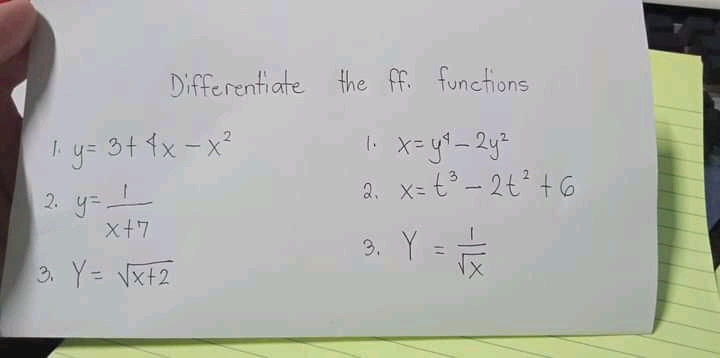 Differentiate the ff. functions
1. y = 3 + 4x - x²
2. y = 1/(x+7)
3. Y = √(x+2)
1. x = y⁴ - 2y²
2. x = t³ - 2t² + 6
3. Y = 1/√x